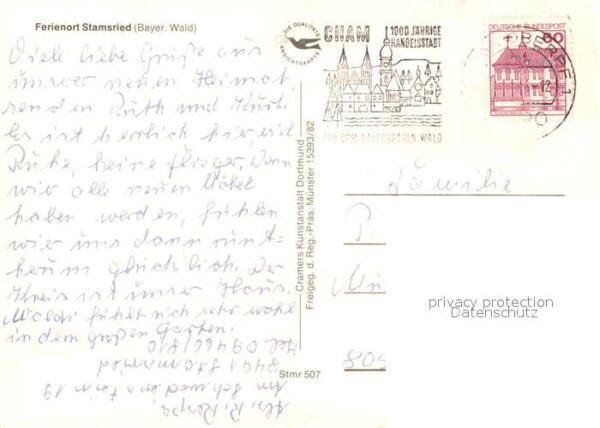 Ferienort Stamsried (Bayer. Wald)
Viele liebe Grüße aus
unserer neuen Heimat
senden Ruth und Kurt.
Es ist herrlich hier, viel
Ruhe, keine Flieger. Wenn
wir alle neuen Möbel
haber werden, fühlen
wir uns dann rund-
herum glücklich. Der
Kreis ist unser Haus.
Waldi fühlt sich sehr wohl
in dem großen Garten.
Tel. 09466/810
8491 Stamsried
Am Schwedenstein 19
Abs. R.
Stmr 507
Cramers Kunstanstalt Dortmund
Freigeg. d. Reg.-Präs. Münster 15393/82
DIE QUALITÄTS
ANSICHTSKARTE
CHAM
1000 JÄHRIGE
HANDELSSTADT
TOR ZUM BAYERISCHEN WALD
DEUTSCHE BUNDESPOST
60
Familie
P.
Mü
805
privacy protection
Datenschutz